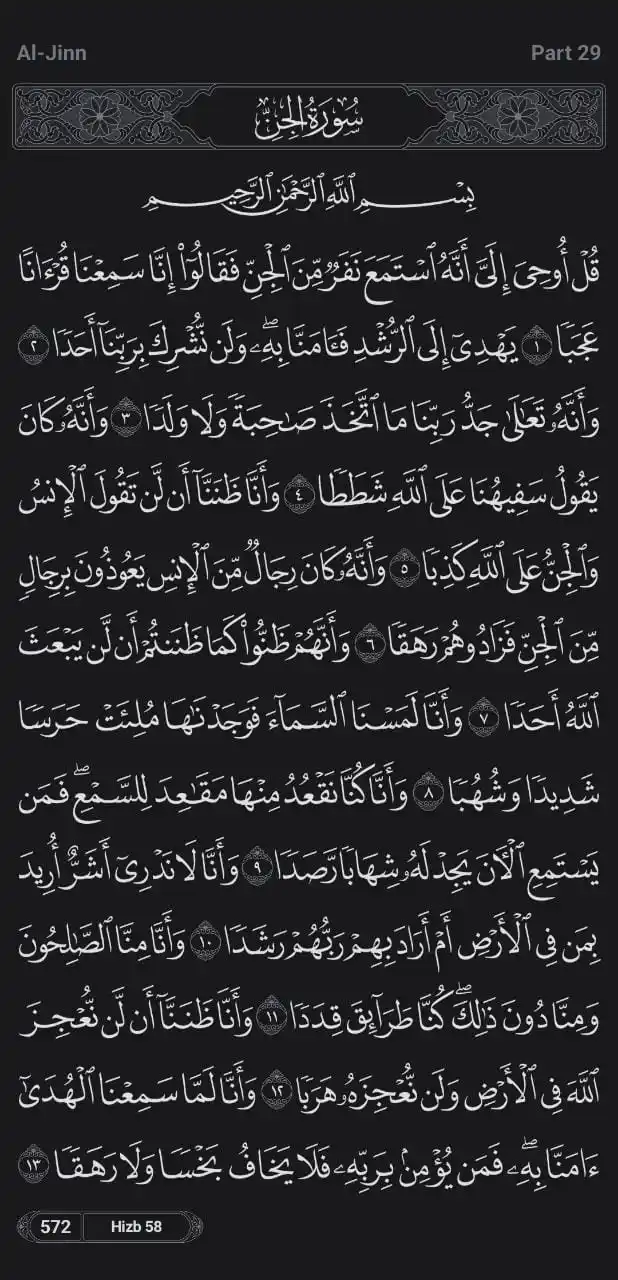 Al-Jinn
Part 29
سُورَةُ الجِنِّ
بِسْمِ ٱللَّهِ ٱلرَّحْمَٰنِ ٱلرَّحِيمِ
قُلْ أُوحِىَ إِلَىَّ أَنَّهُ ٱسْتَمَعَ نَفَرٌ مِّنَ ٱلْجِنِّ فَقَالُوٓا۟ إِنَّا سَمِعْنَا قُرْءَانًا
عَجَبًا ١ يَهْدِىٓ إِلَى ٱلرُّشْدِ فَـَٔامَنَّا بِهِۦ ۖ وَلَن نُّشْرِكَ بِرَبِّنَآ أَحَدًا ٢
وَأَنَّهُۥ تَعَٰلَىٰ جَدُّ رَبِّنَا مَا ٱتَّخَذَ صَٰحِبَةً وَلَا وَلَدًا ٣ وَأَنَّهُۥ كَانَ
يَقُولُ سَفِيهُنَا عَلَى ٱللَّهِ شَطَطًا ٤ وَأَنَّا ظَنَنَّآ أَن لَّن تَقُولَ ٱلْإِنسُ
وَٱلْجِنُّ عَلَى ٱللَّهِ كَذِبًا ٥ وَأَنَّهُۥ كَانَ رِجَالٌ مِّنَ ٱلْإِنسِ يَعُوذُونَ بِرِجَالٍ
مِّنَ ٱلْجِنِّ فَزَادُوهُمْ رَهَقًا ٦ وَأَنَّهُمْ ظَنُّوا۟ كَمَا ظَنَنتُمْ أَن لَّن يَبْعَثَ
ٱللَّهُ أَحَدًا ٧ وَأَنَّا لَمَسْنَا ٱلسَّمَآءَ فَوَجَدْنَٰهَا مُلِئَتْ حَرَسًا
شَدِيدًا وَشُهُبًا ٨ وَأَنَّا كُنَّا نَقْعُدُ مِنْهَا مَقَٰعِدَ لِلسَّمْعِ ۖ فَمَن
يَسْتَمِعِ ٱلْـَٔانَ يَجِدْ لَهُۥ شِهَابًا رَّصَدًا ٩ وَأَنَّا لَا نَدْرِىٓ أَشَرٌّ أُرِيدَ
بِمَن فِى ٱلْأَرْضِ أَمْ أَرَادَ بِهِمْ رَبُّهُمْ رَشَدًا ١٠ وَأَنَّا مِنَّا ٱلصَّٰلِحُونَ
وَمِنَّا دُونَ ذَٰلِكَ ۖ كُنَّا طَرَآئِقَ قِدَدًا ١١ وَأَنَّا ظَنَنَّآ أَن لَّن نُّعْجِزَ
ٱللَّهَ فِى ٱلْأَرْضِ وَلَن نُّعْجِزَهُۥ هَرَبًا ١٢ وَأَنَّا لَمَّا سَمِعْنَا ٱلْهُدَىٰٓ
ءَامَنَّا بِهِۦ ۖ فَمَن يُؤْمِنۢ بِرَبِّهِۦ فَلَا يَخَافُ بَخْسًا وَلَا رَهَقًا ١٣
572 Hizb 58